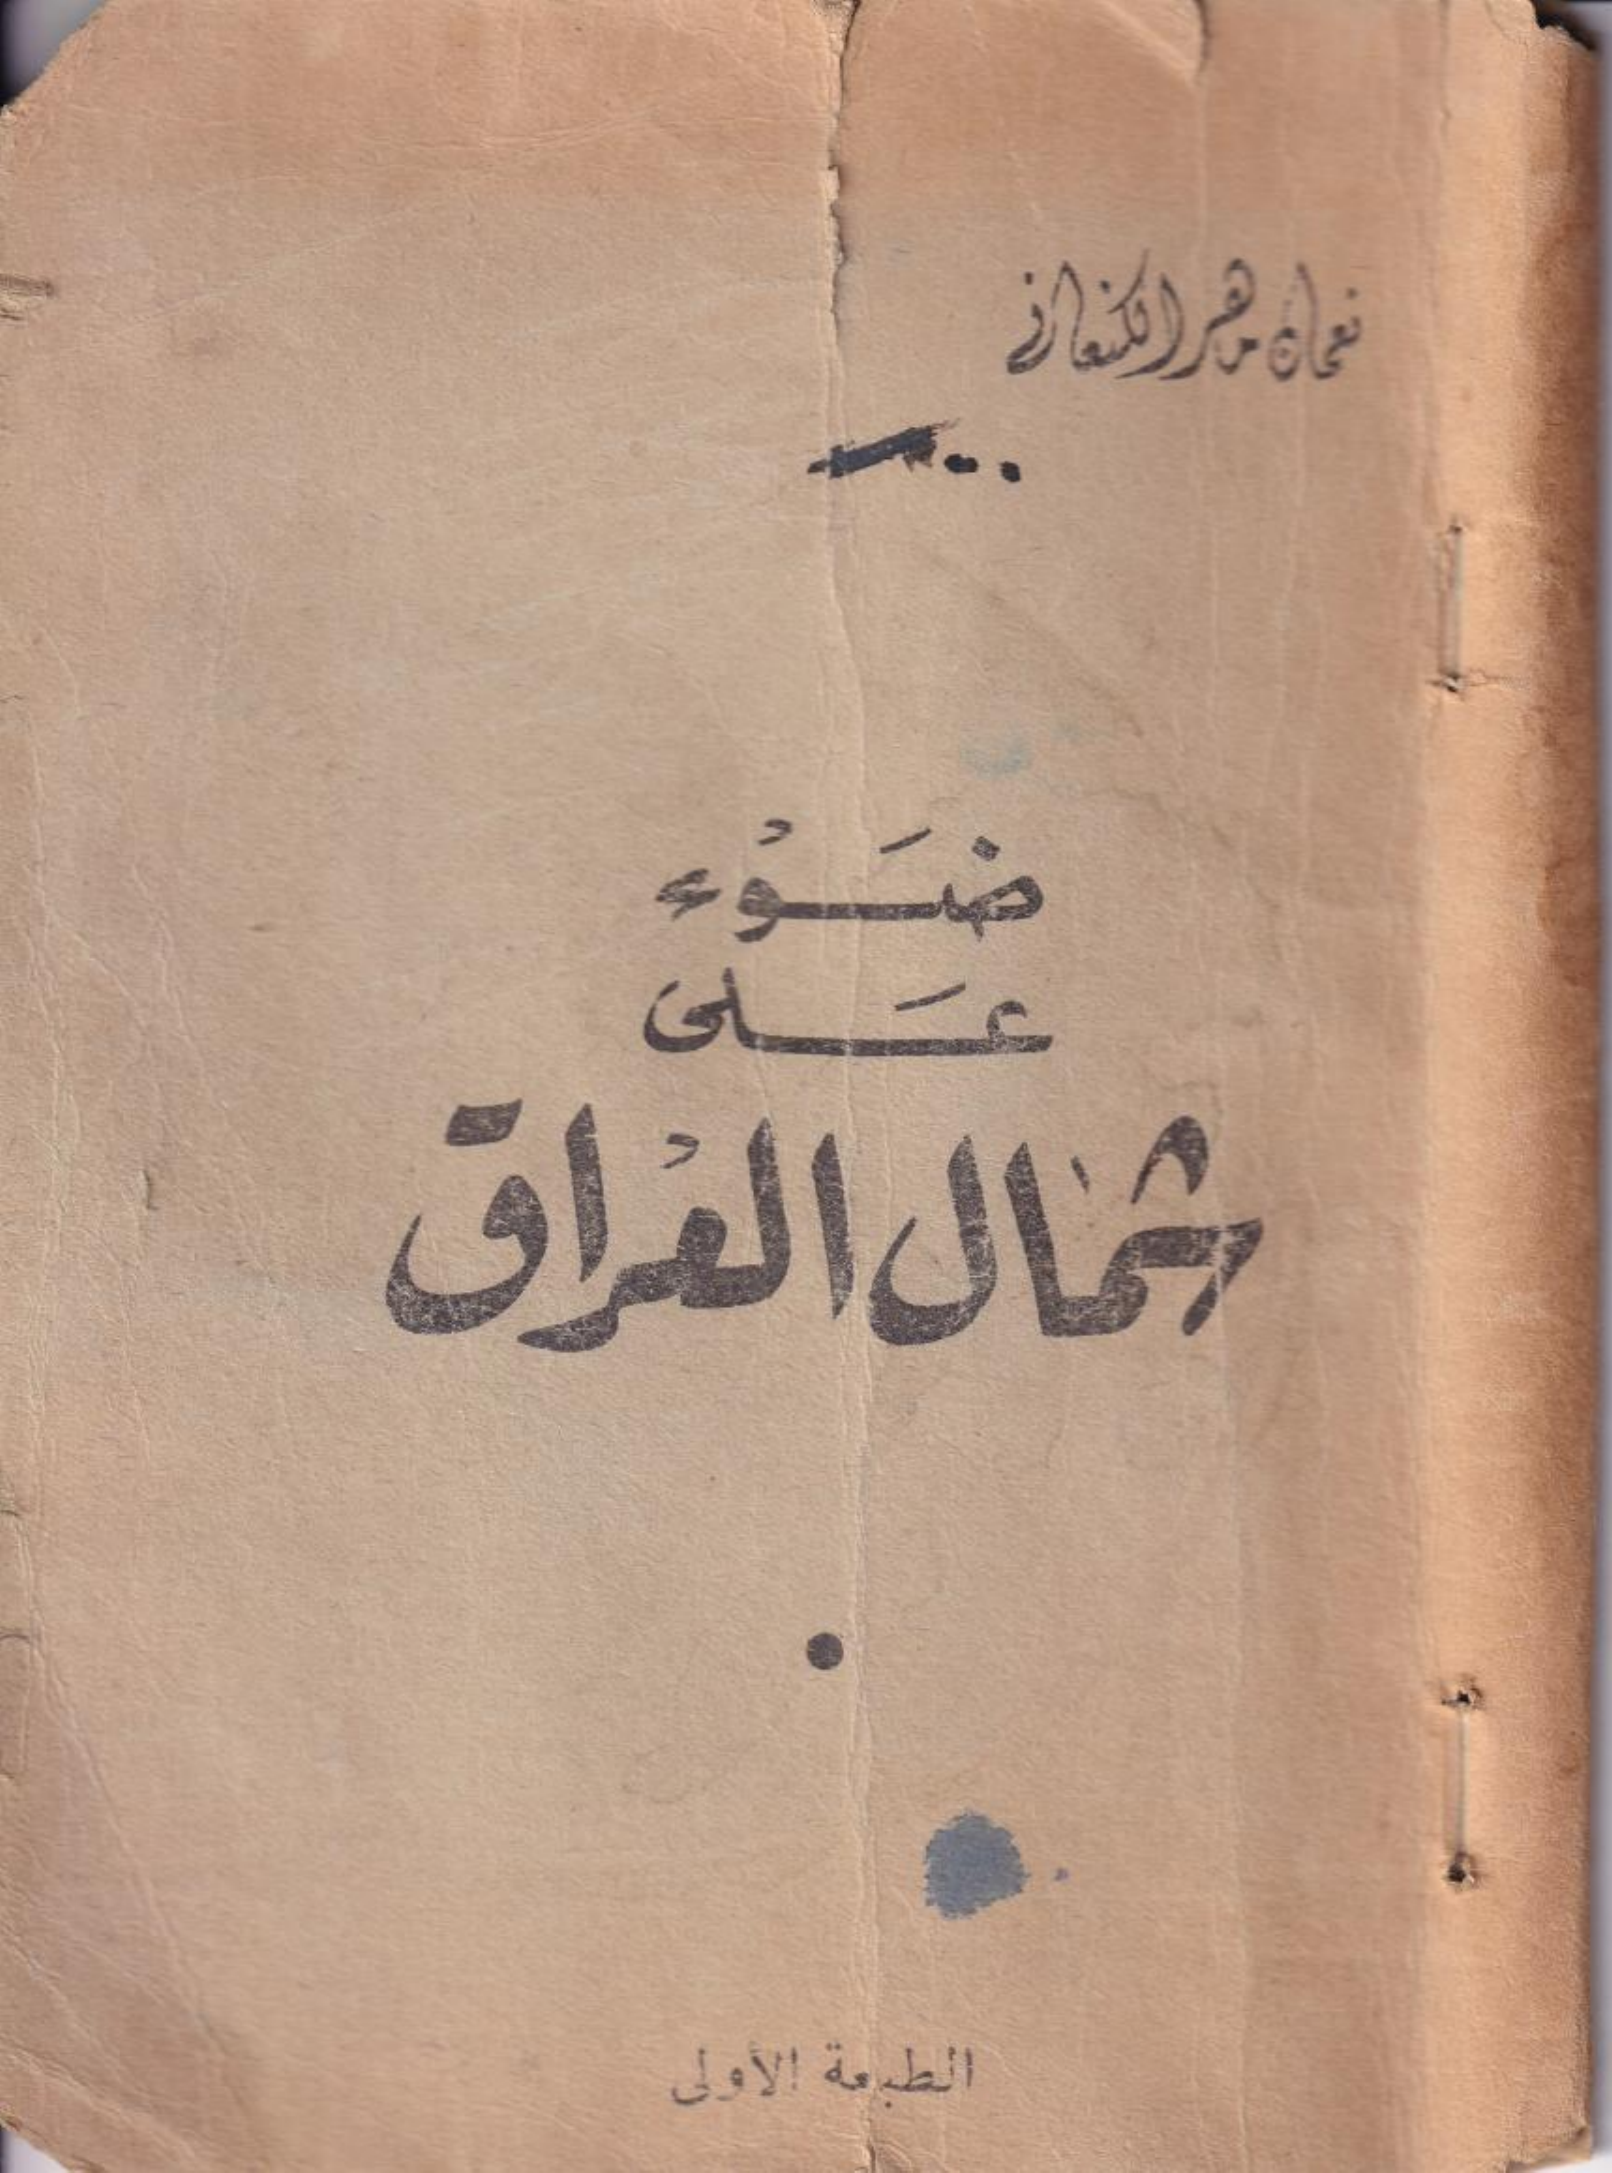 نعمان ماهر الكنعاني
ضَوْء
عَلى
شمال العْراق
الطبعة الأولى